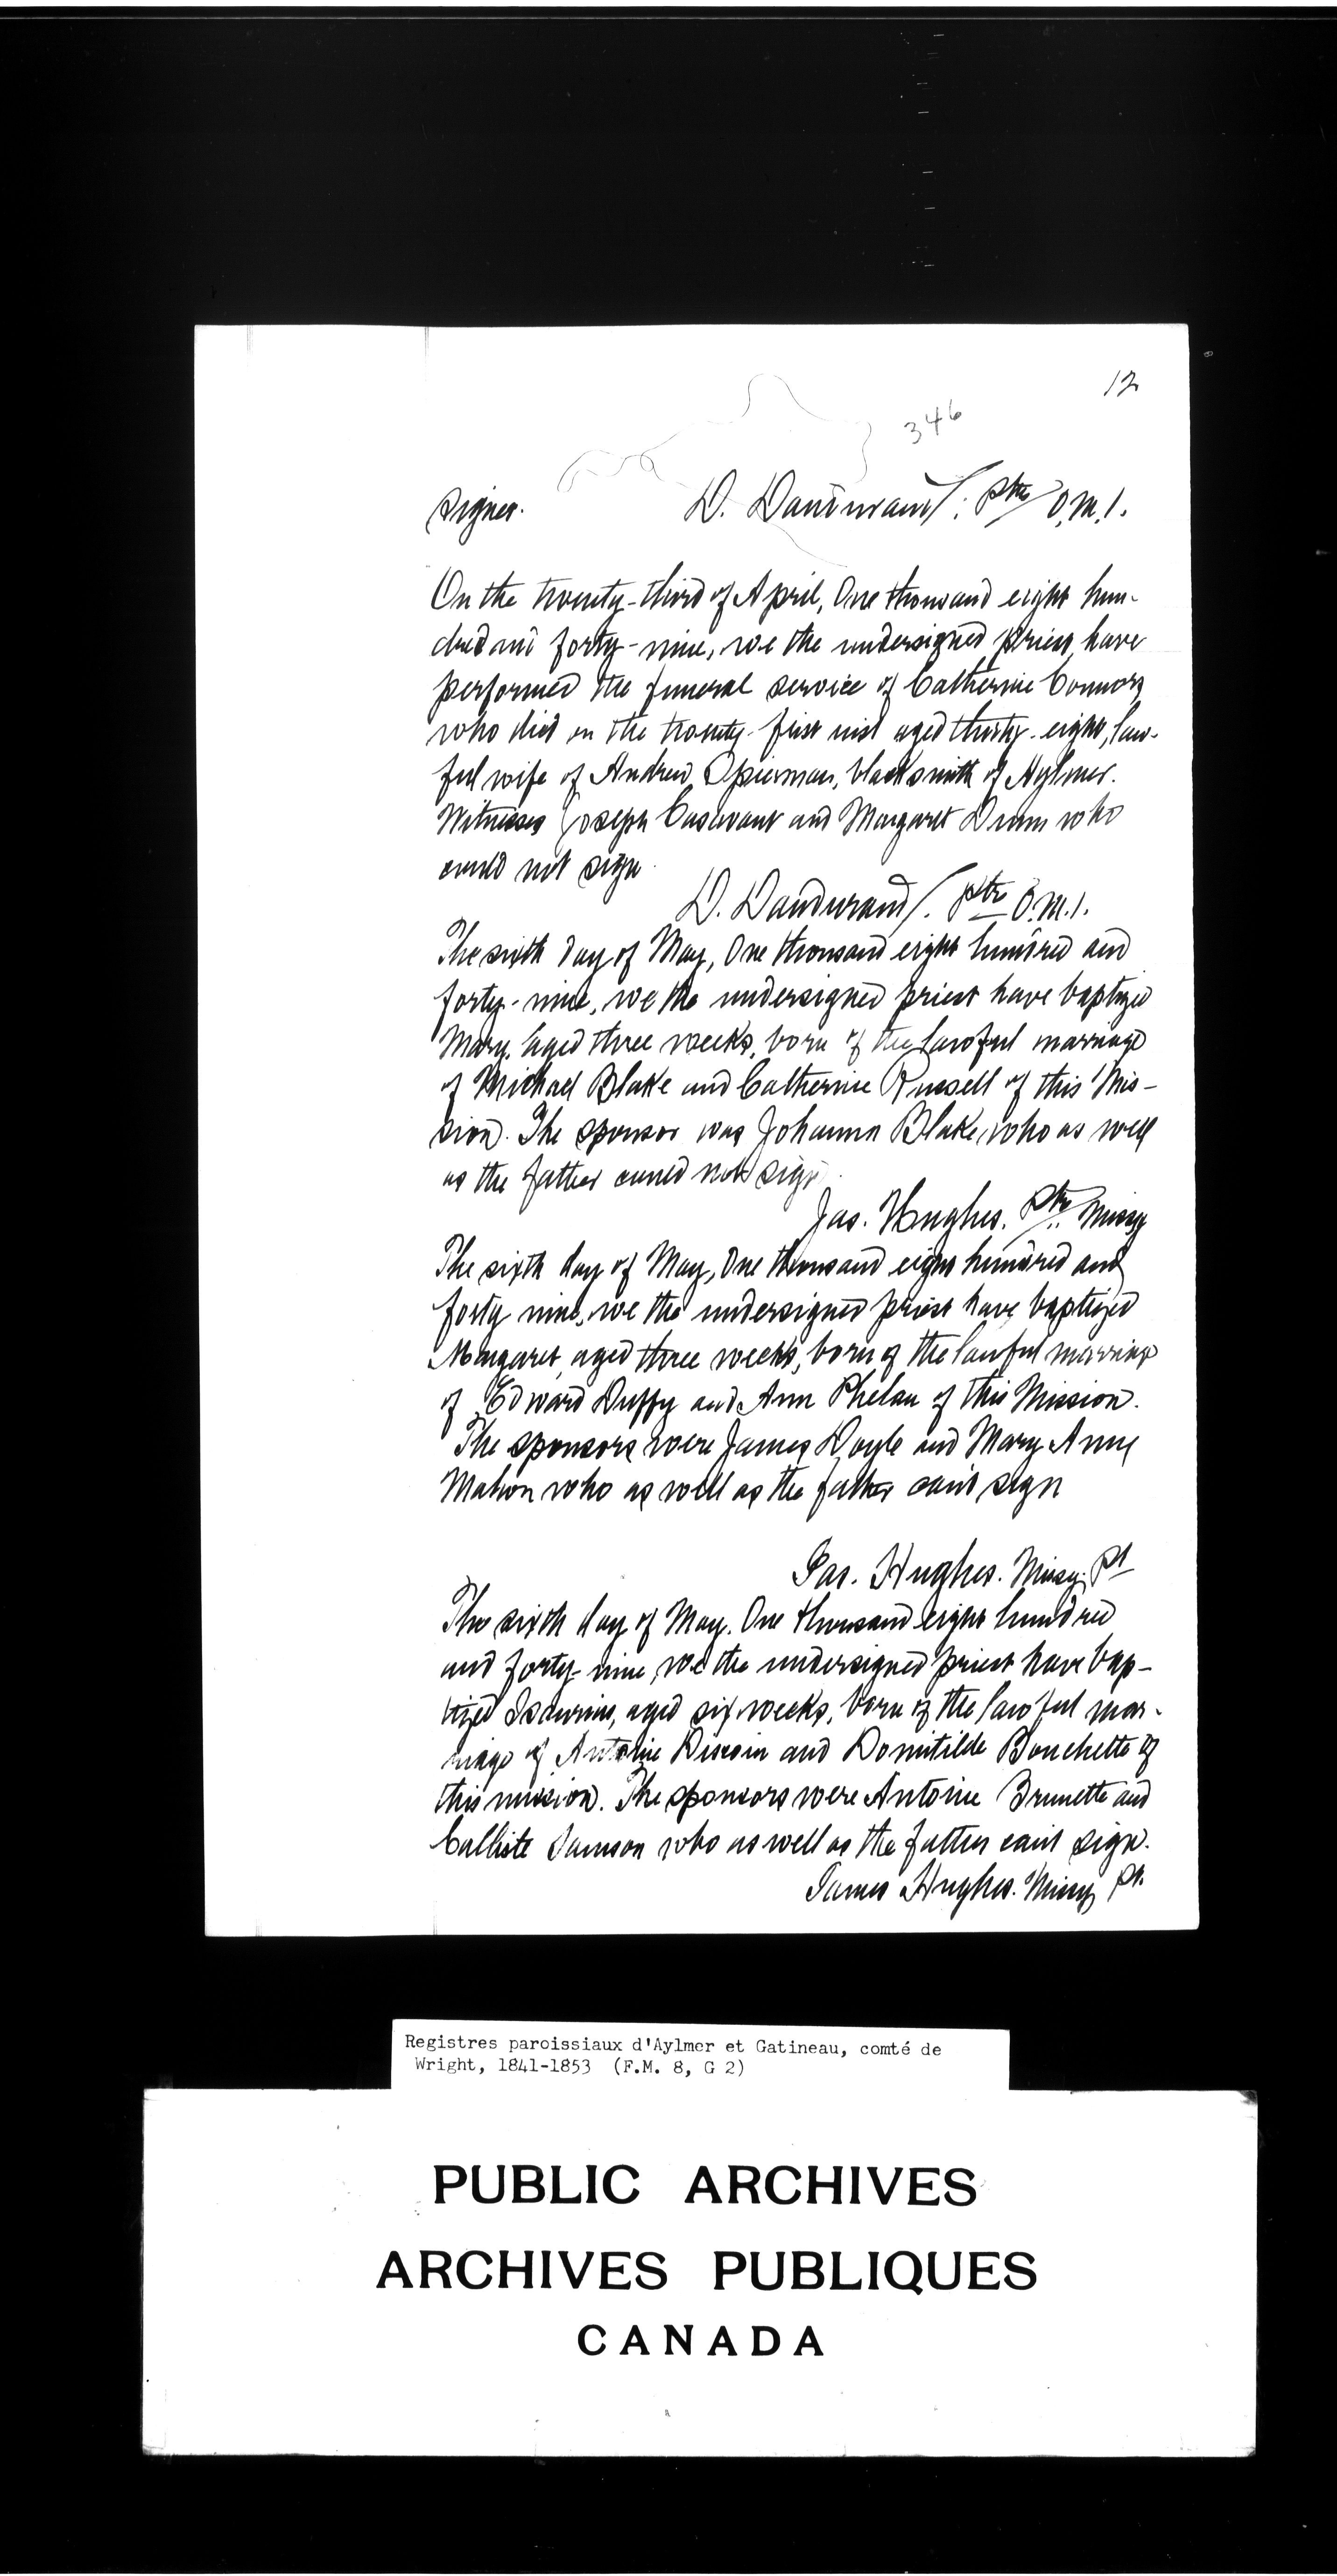 12
346
signer. D. Dandurand, Ptre O.M.I.
On the twenty-third of April, One thousand eight hun-
dred and forty-nine, we the undersigned priest, have
performed the funeral service of Catherine Connors
who died on the twenty-first inst aged thirty-eight, law-
ful wife of Andrew Spierman, blacksmith of Aylmer.
Witnesses Joseph Casavant and Margaret Drum who
could not sign.
D. Dandurand, Ptre O.M.I.
The sixth day of May, One thousand eight hundred and
forty-nine, we the undersigned priest have baptized
Mary, aged three weeks, born of the lawful marriage
of Michael Blake and Catherine Russell of this Mis-
sion. The sponsor was Johanna Blake, who as well
as the father could not sign.
Jas. Hughes. Ptre. Missy
The sixth day of May, One thousand eight hundred and
forty nine, we the undersigned priest have baptized
Margaret, aged three weeks, born of the lawful marriage
of Edward Duffy and Ann Phelan of this Mission.
The sponsors were James Doyle and Mary Anne
Mahon who as well as the father can't sign
Jas. Hughes. Missy. Pt
The sixth day of May. One thousand eight hundred
and forty-nine, we the undersigned priest have bap-
tized aged six weeks, born of the lawful mar-
riage of Antoine and Domitilde Bouchette of
this mission. The sponsors were Antoine Brunette and
Calliste Samson who as well as the father can't sign.
James Hughes. Missy Pt.
Registres paroissiaux d'Aylmer et Gatineau, comté de
Wright, 1841-1853 (F.M. 8, G 2)
PUBLIC ARCHIVES
ARCHIVES PUBLIQUES
CANADA